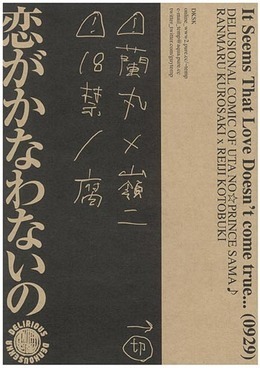 It Seems That Love Doesn't come true... (0929)
DELUSIONAL COMIC OF UTA NO☆PRINCE SAMA♪
RANMARU KUROSAKI x REIJI KOTOBUKI
DKSK
蘭丸×嶺二
18禁/腐
→切
恋がかなわないの
DELIRIOUS